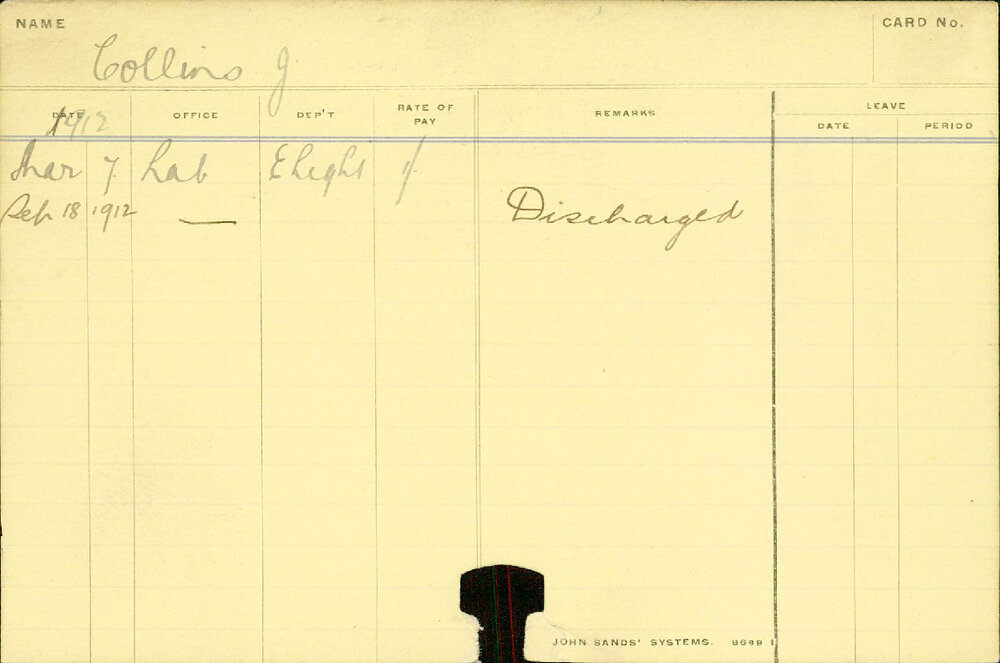 NAME
CARD No.
Collins J
DATE OFFICE DEP'T RATE OF PAY REMARKS LEAVE
DATE PERIOD
1912
Mar 7 Lab E Light 1/
Sep 18 1912 — Discharged
JOHN SANDS' SYSTEMS. 8689 1